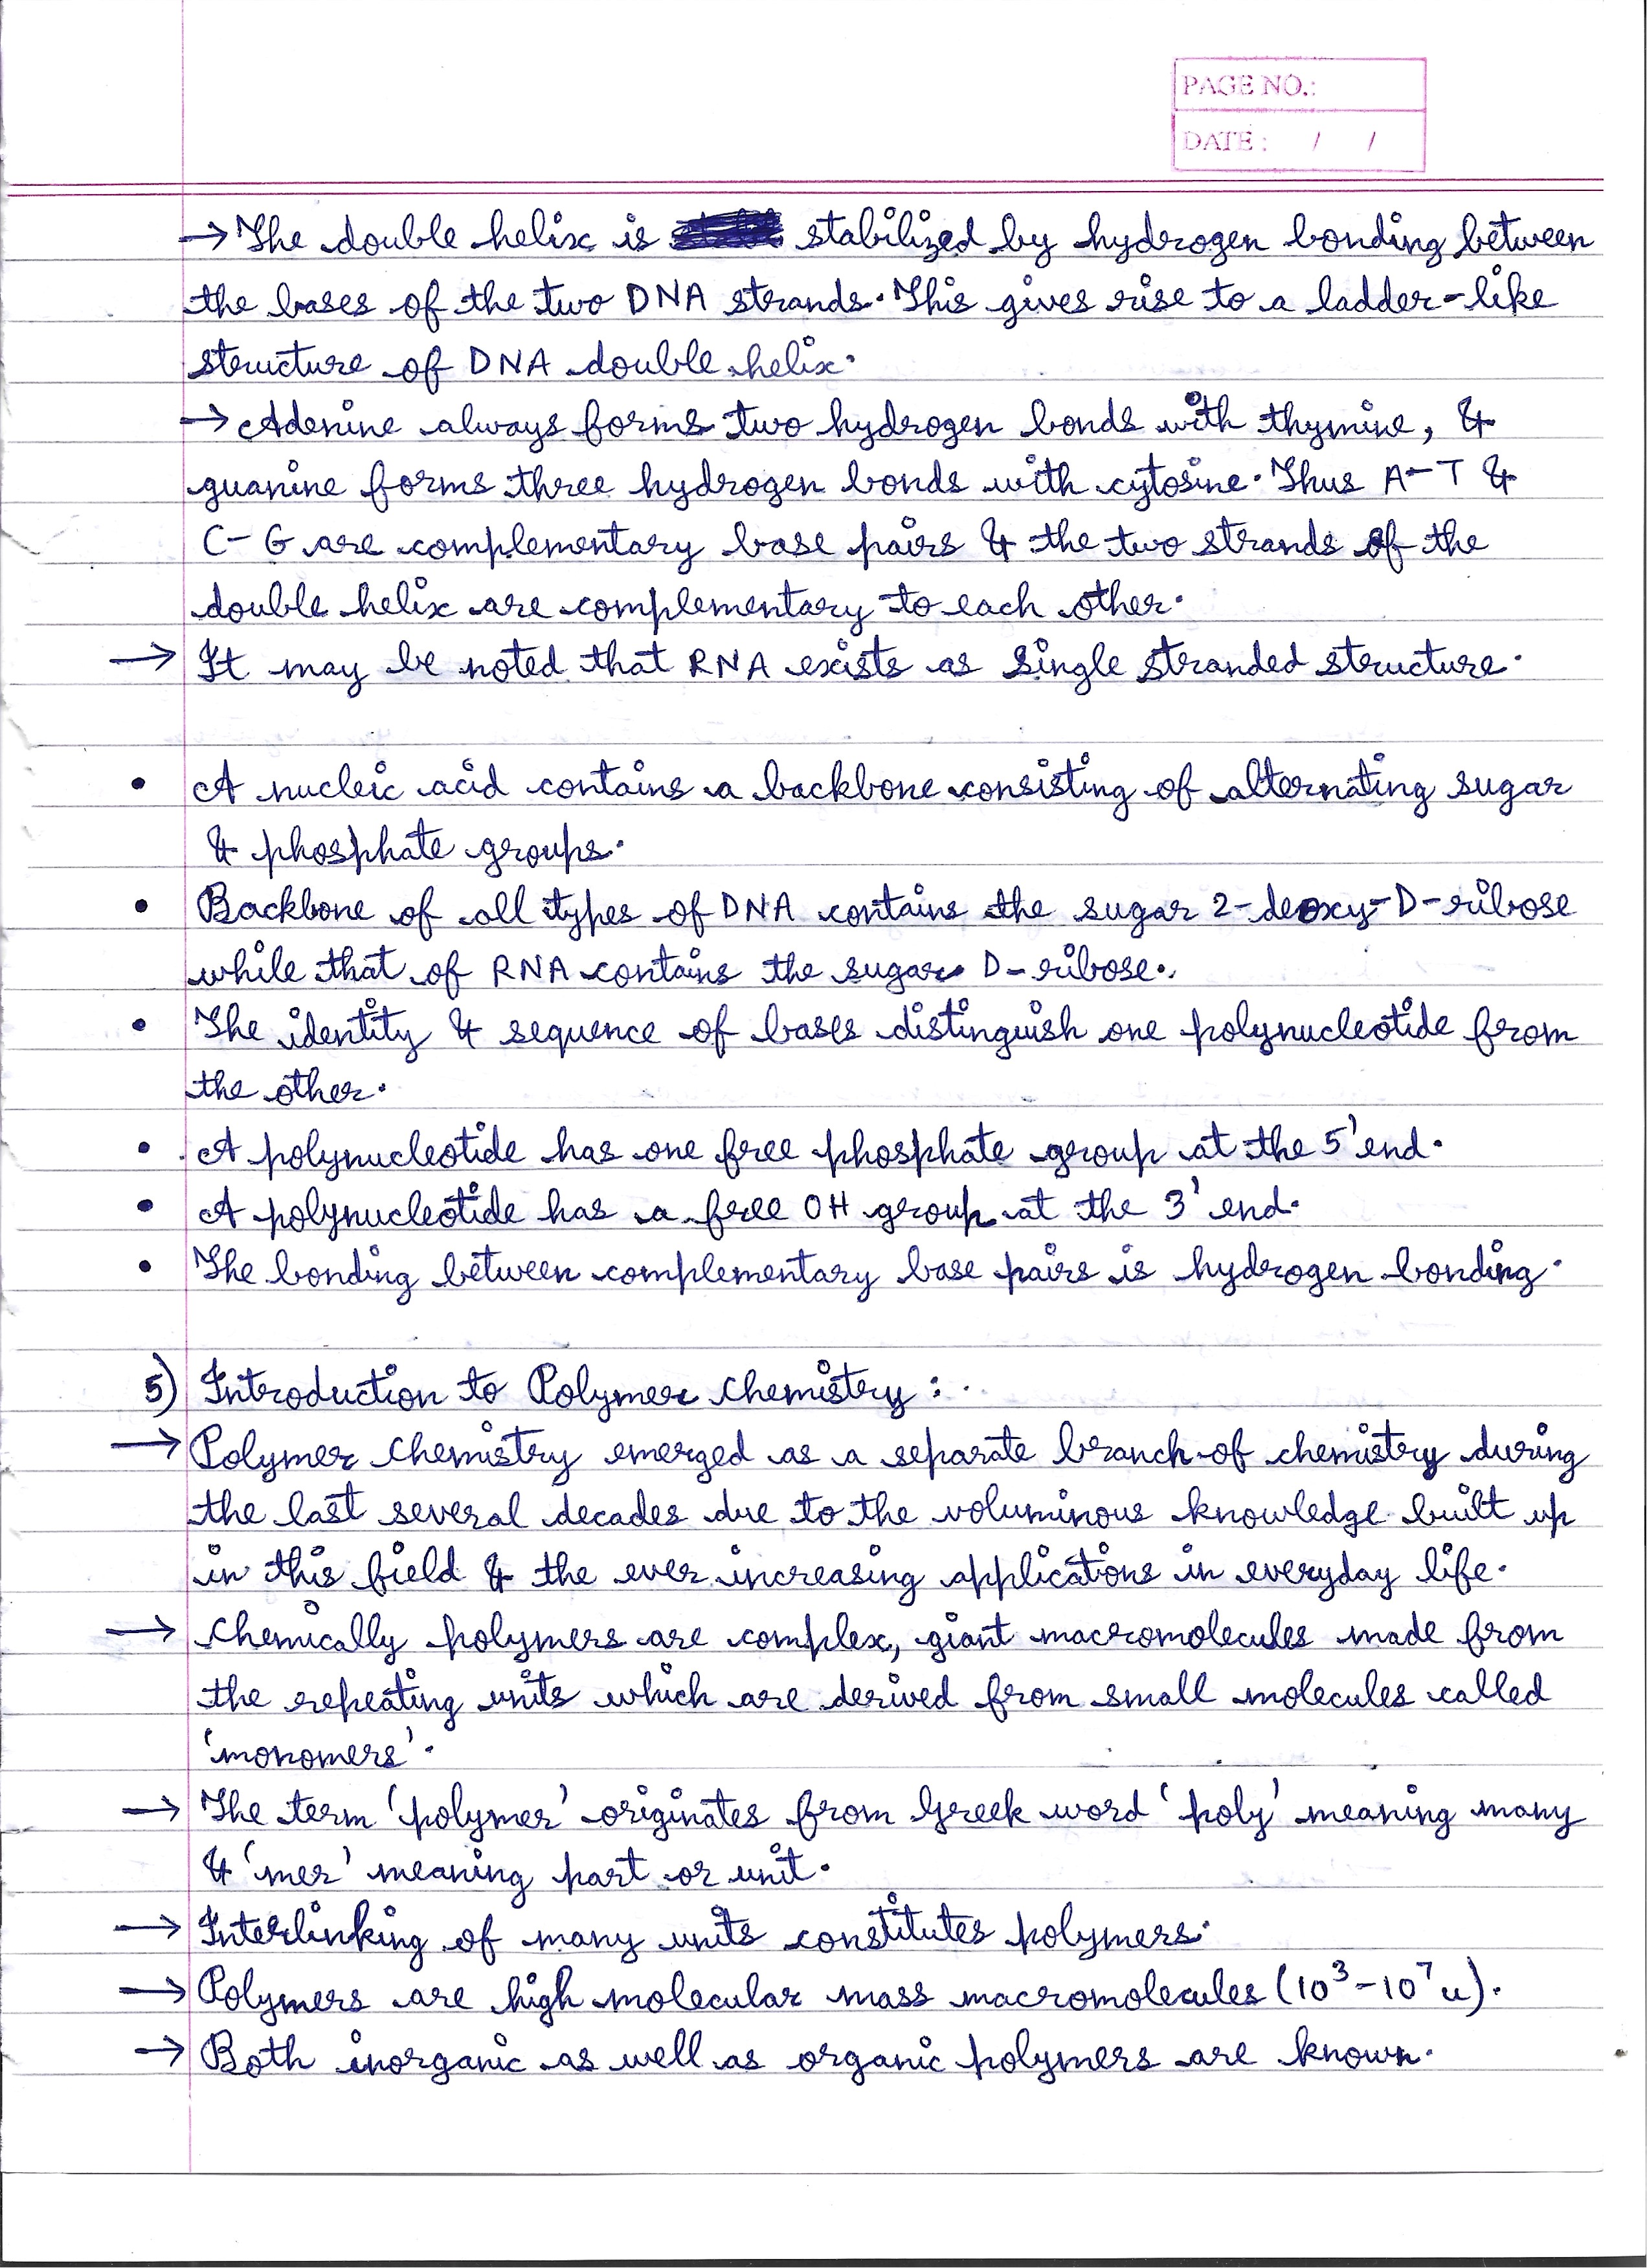 PAGE NO.:
DATE : / /
→ The double helix is stabilized by hydrogen bonding between
the bases of the two DNA strands. This gives rise to a ladder-like
structure of DNA double helix.
→ Adenine always forms two hydrogen bonds with thymine, &
guanine forms three hydrogen bonds with cytosine. Thus A-T &
C-G are complementary base pairs & the two strands of the
double helix are complementary to each other.
→ It may be noted that RNA exists as single stranded structure.
• A nucleic acid contains a backbone consisting of alternating sugar
& phosphate groups.
• Backbone of all types of DNA contains the sugar 2-deoxy-D-ribose
while that of RNA contains the sugar D-ribose.
• The identity & sequence of bases distinguish one polynucleotide from
the other.
• A polynucleotide has one free phosphate group at the 5' end.
• A polynucleotide has a free OH group at the 3' end.
• The bonding between complementary base pairs is hydrogen bonding.
5) Introduction to Polymer Chemistry :
→ Polymer chemistry emerged as a separate branch of chemistry during
the last several decades due to the voluminous knowledge built up
in this field & the ever increasing applications in everyday life.
→ Chemically polymers are complex, giant macromolecules made from
the repeating units which are derived from small molecules called
'monomers'.
→ The term 'polymer' originates from Greek word 'poly' meaning many
& 'mer' meaning part or unit.
→ Interlinking of many units constitutes polymers.
→ Polymers are high molecular mass macromolecules (10³-10⁷ u).
→ Both inorganic as well as organic polymers are known.